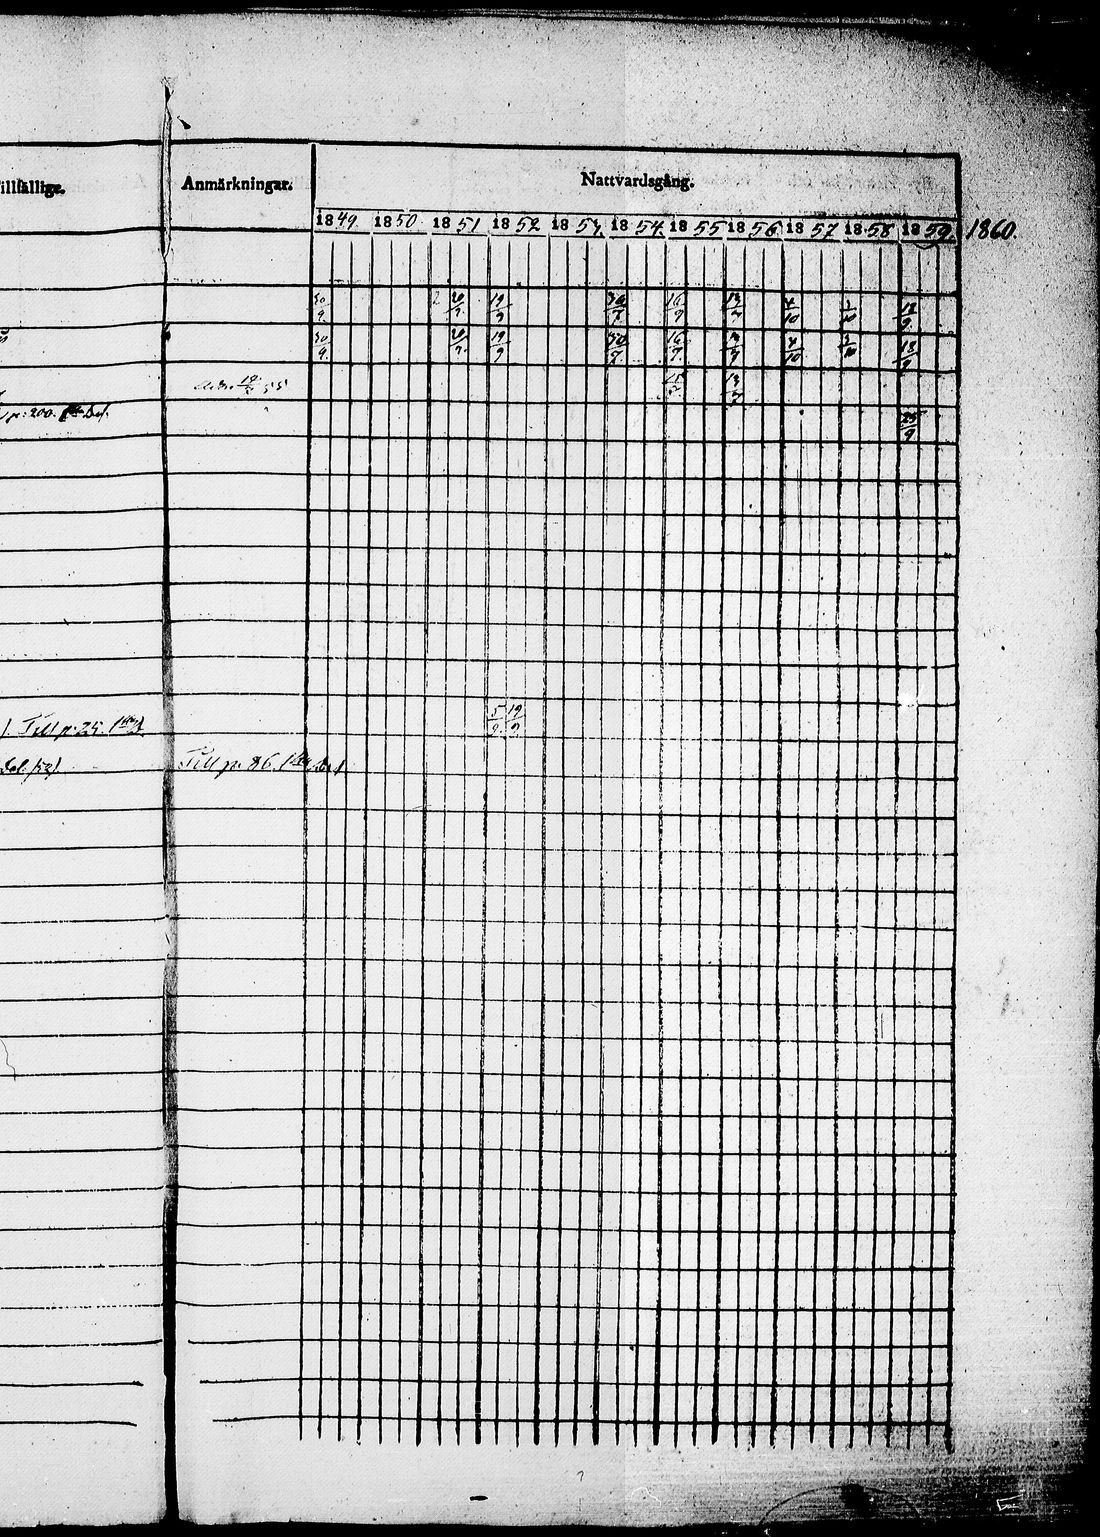 Tillfällige. Anmärkningar. Nattvardsgång.
1849. 1850. 1851 1852 1853 1854 1855 1856 1857 1858 1859. 1860.
30/9. 20/7. 19/9 30/7 16/9 13/7 4/10 3/10 18/9.
30/9. 20/7. 19/9 30/7. 16/9. 13/7 4/10 3/10 18/9
55 13/7
p: 200. Del. 25/9
Till p: 25. 5/9 19/9
Till p: 86.